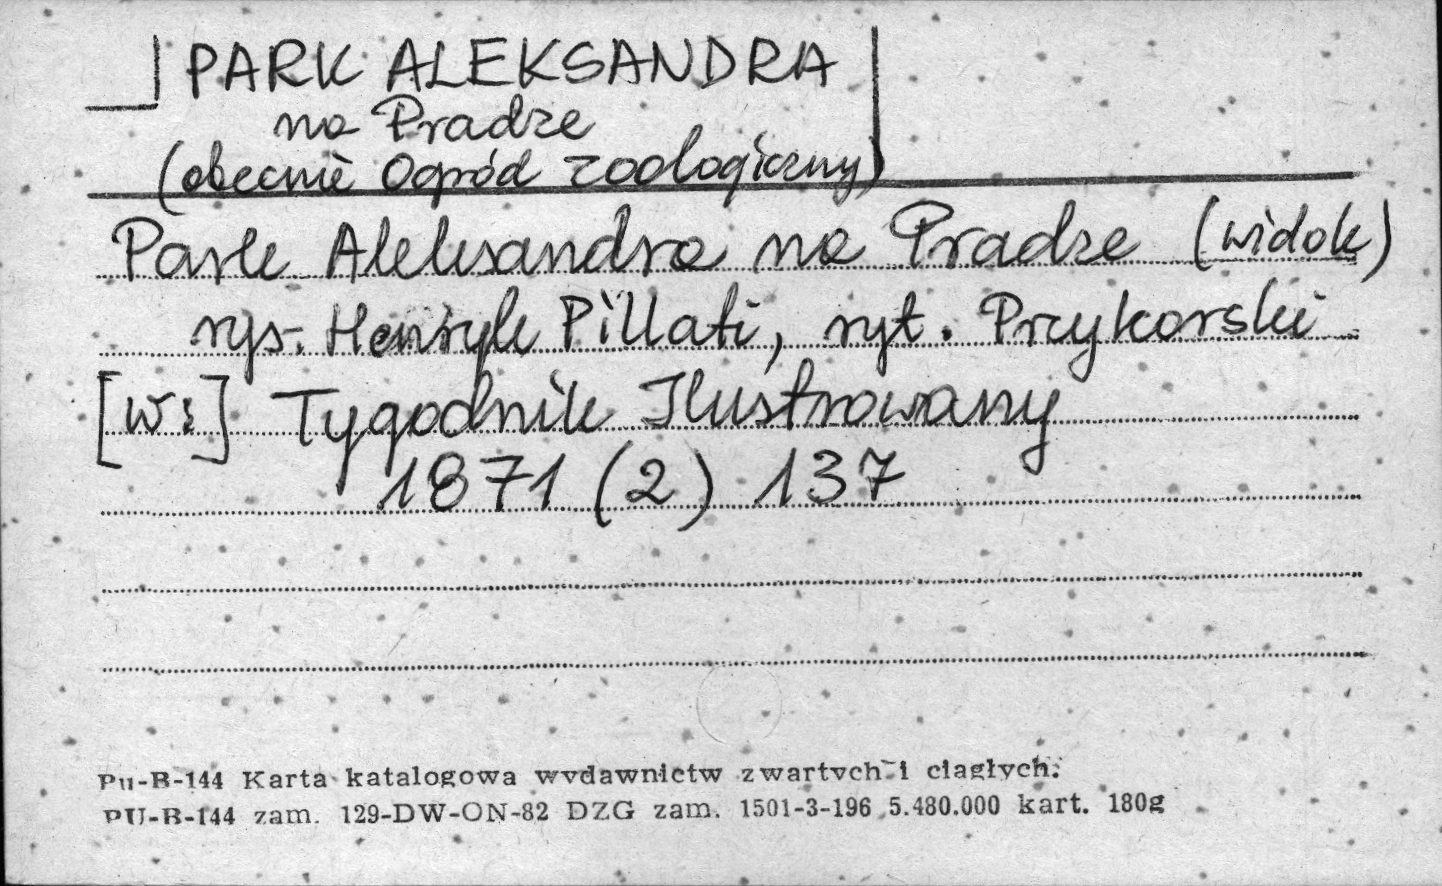 PARK ALEKSANDRA
na Pradze
(obecnie Ogród zoologiczny)
Park Aleksandra na Pradze (widok)
rys. Henryk Pillati, ryt. Przykorski
[w:] Tygodnik Ilustrowany
1871 (2) 137
Pu-B-144 Karta katalogowa wydawnictw zwartych i ciągłych.
PU-B-144 zam. 129-DW-ON-82 DZG zam. 1501-3-196 5.480.000 kart. 180g